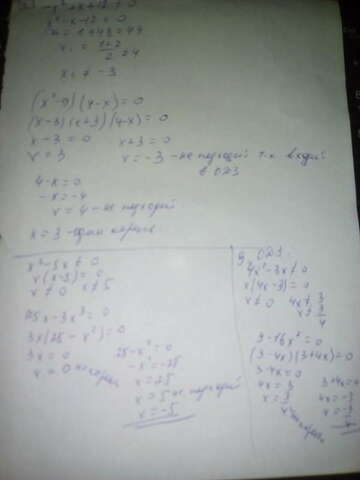 x² - x - 12 = 0
D = 1 + 48 = 49
x₁ = (1+7)/2 = 4
x₂ ≠ -3
(x² - 9)(4 - x) = 0
(x - 3)(x + 3)(4 - x) = 0
x - 3 = 0    x + 3 = 0
x = 3    x = -3 - не подходит т.к. входит
в ОДЗ
4 - x = 0
-x = -4
x = 4 - не подходит
x = 3 - один корень
x² - 5x ≠ 0
x(x - 5) = 0
x ≠ 0    x ≠ 5
75x - 3x³ = 0
3x(25 - x²) = 0
3x = 0    25 - x² = 0
x = 0 не корень    -x² = -25
x = 25
x = 5 не подходит
x = -5
ОДЗ:
4x² - 3x ≠ 0
x(4x - 3) = 0
x ≠ 0    4x ≠ 3
x ≠ 3/4
9 - 16x² = 0
(3 - 4x)(3 + 4x) = 0
3 - 4x = 0
4x = 3    3 + 4x = 0
x = 3/4    4x = -3
не корень    x = -3/4